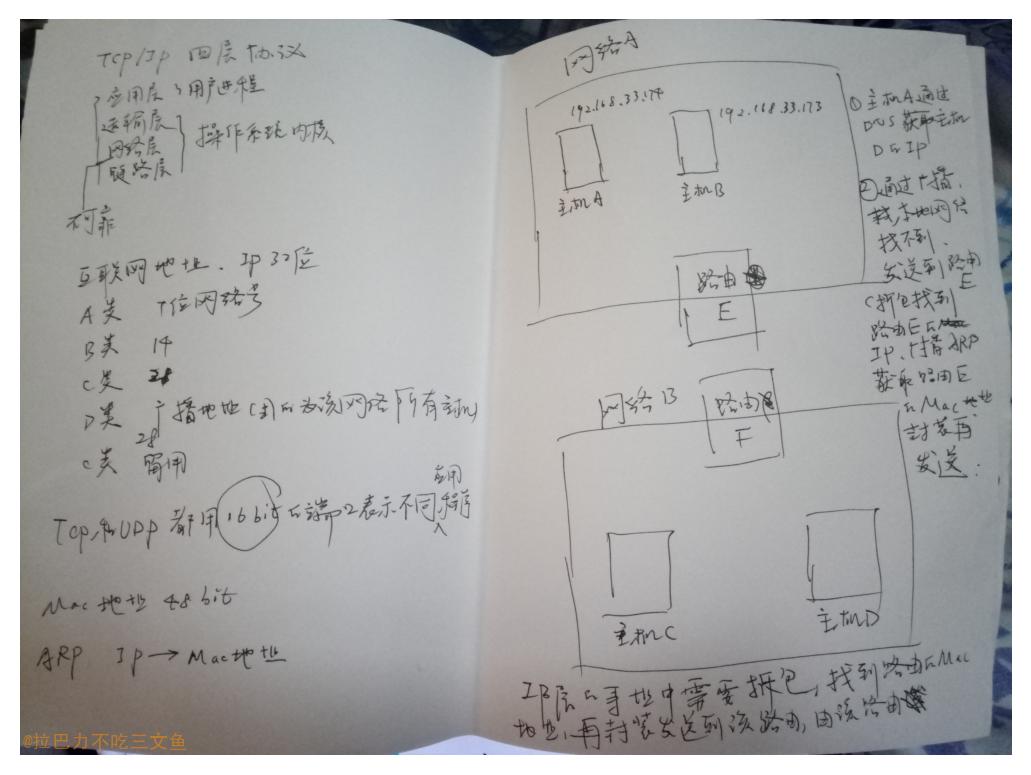 Tcp/Ip 四层协议
应用层 用户进程
运输层
网络层
链路层
操作系统内核
不可靠
互联网地址. Ip 32位
A类 7位网络号
B类 14
C类
D类 广播地址
28
c类 留用
Tcp和UDp 都用16bit的端口表示不同应用程序
Mac地址 48bit
ARP Ip→Mac地址
网络A
192.168.33.174
192.168.33.173
主机A
主机B
路由
E
网络B
路由
F
主机C
主机D
①主机A通过
DNS获取主机
D的IP
②通过广播.
找本地网络
找不到.
发送到路由
E
拆包找到
路由E的
IP.广播ARP
获取路由E
的Mac地址
封装再
发送.
层的寻址中需要拆包,找到路由的Mac
地址,再封装发送到该路由,由该路由
@拉巴力不吃三文鱼